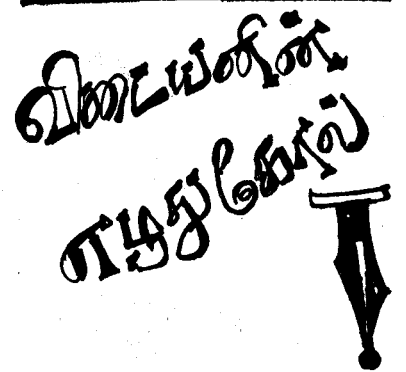 விடையனின்
எழுதுகோல்